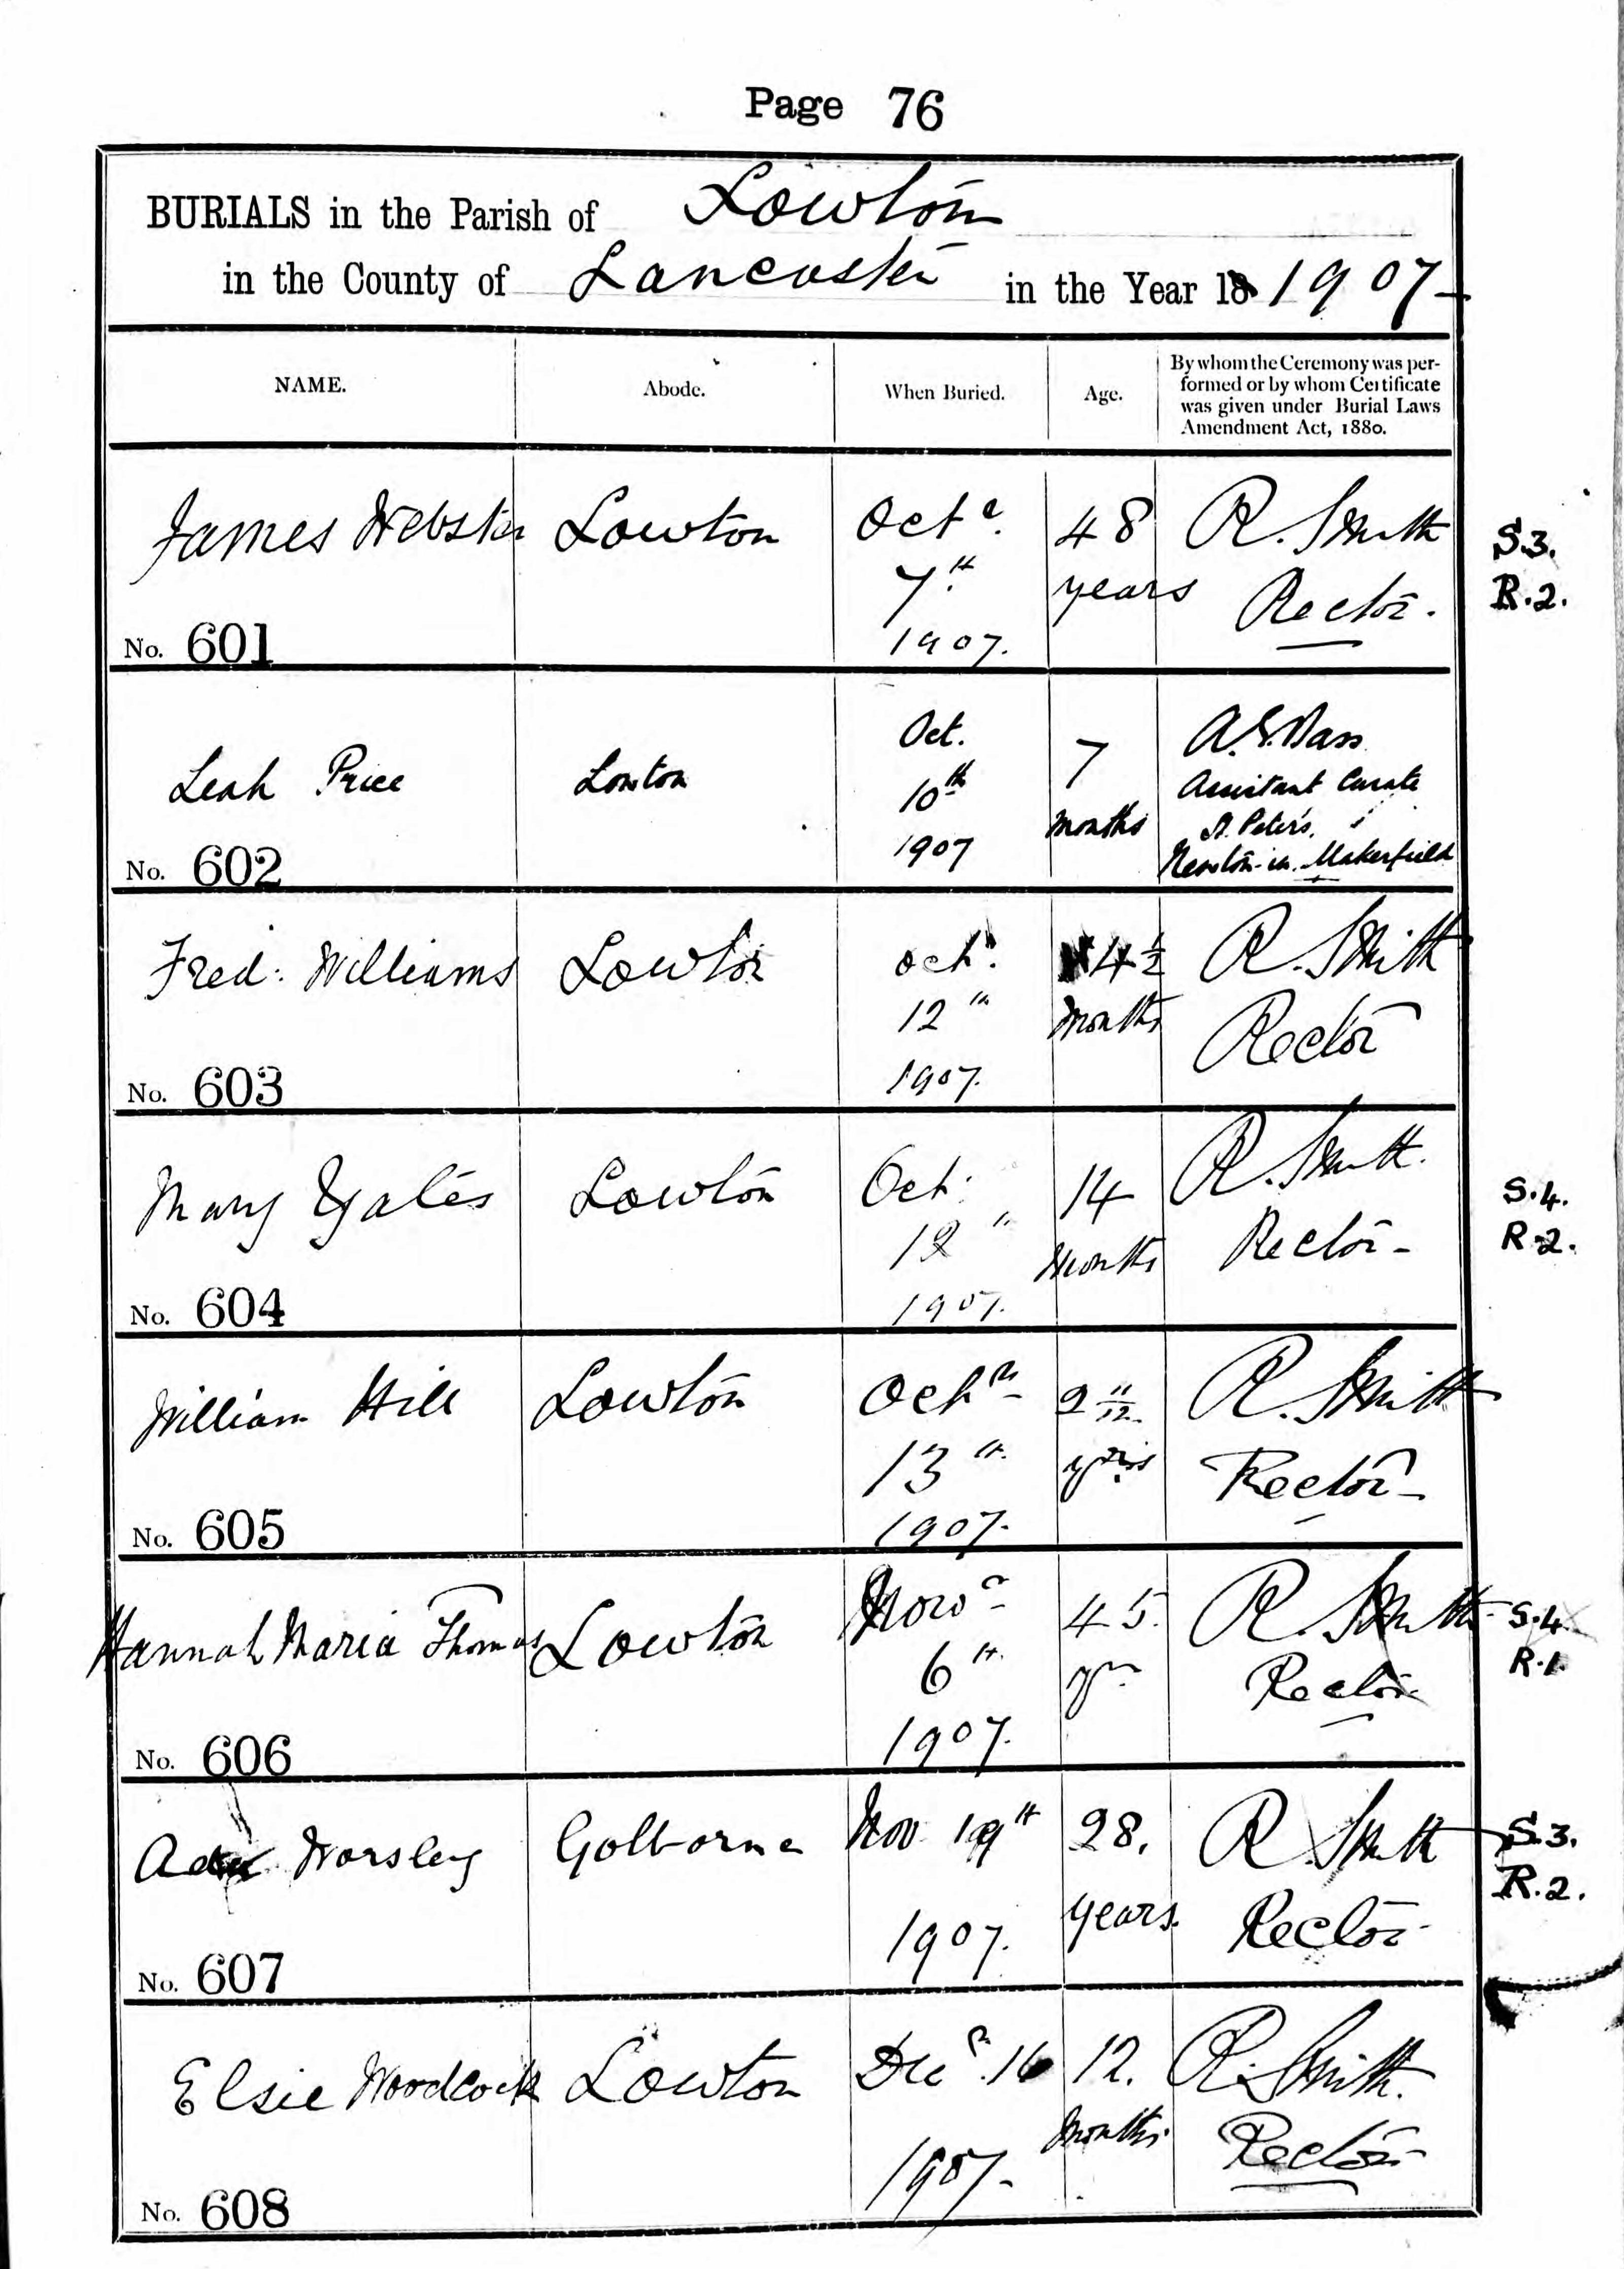 Page 76
BURIALS in the Parish of Lowton
in the County of Lancaster in the Year 18 1907
NAME. Abode. When Buried. Age. By whom the Ceremony was per-
formed or by whom Certificate
was given under Burial Laws
Amendment Act, 1880.
James Webster Lowton Octr. 48 R. Smith S.3.
7th years Rector. R.2.
No. 601 1907.
Leah Price Lowton Oct. 7 A.E. Bass
10th months Assistant Curate
St. Peter's,
No. 602 1907 Newton-in-Makerfield
Fred: Williams Lowton Octr. 4½ R. Smith
12th months Rector
No. 603 1907.
Mary Yates Lowton Oct. 14 R. Smith. S.4.
12th months Rector R.2.
No. 604 1907.
William Hill Lowton Octr 2 11/12 R. Smith
13th yrs Rector
No. 605 1907.
Hannah Maria Thomas Lowton Novr 45. R. Smith S.4.
6th yrs Rector R.1.
No. 606 1907.
Worsley Golborne Nov 19th 28. R. Smith S.3.
1907. years. Rector R.2.
No. 607
Elsie Woodcock Lowton Decr. 16 12. R. Smith.
1907. months Rector
No. 608